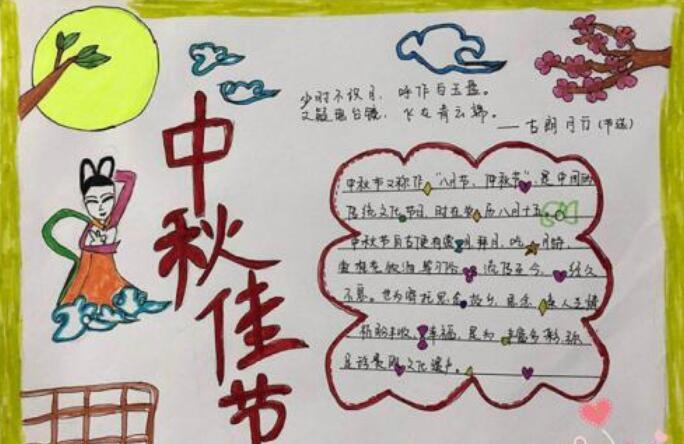 中秋佳节
少时不识月，呼作白玉盘。
又疑瑶台镜，飞在青云端。
——古朗月行（节选）
中秋节又称作“八月节、仲秋节”是中国的
传统文化节日，时在农历八月十五。
中秋节自古便有祭月、拜月、吃月饼、
流传至今，经久
不息。也为寄托思念故乡，思念亲人之情
祈盼丰收、幸福，是为丰富多彩、弥
足珍贵的文化遗产。